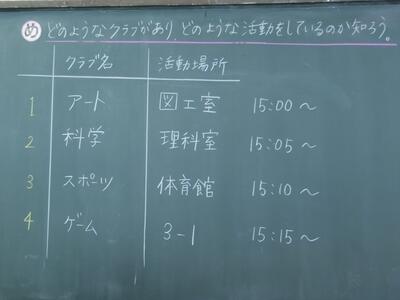 め どのようなクラブがあり、どのような活動をしているのか知ろう。
クラブ名 活動場所
1 アート 図工室 15:00～
2 科学 理科室 15:05～
3 スポーツ 体育館 15:10～
4 ゲーム 3-1 15:15～